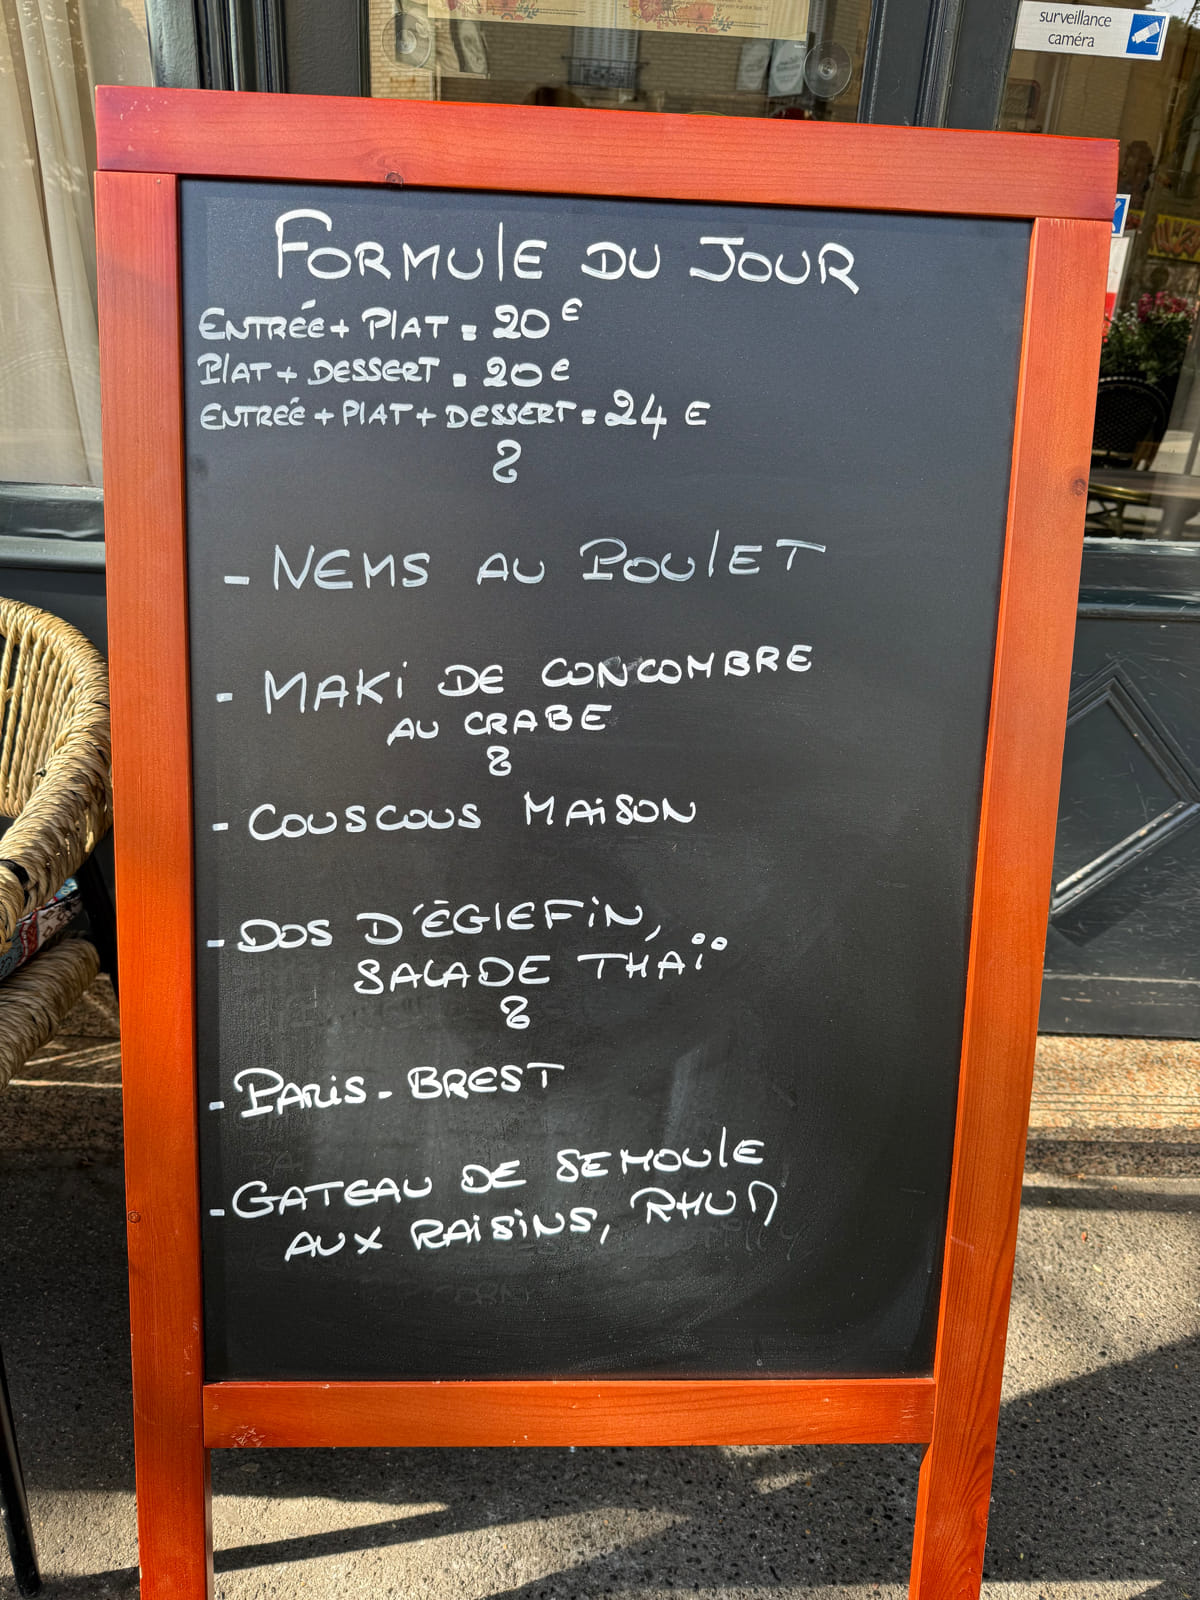 surveillance
caméra
FORMULE DU JOUR
ENTRÉE + PLAT = 20 €
PLAT + DESSERT = 20 €
ENTRÉE + PLAT + DESSERT = 24 €
- NEMS AU POULET
- MAKi DE CONCOMBRE
AU CRABE
- COUSCOUS MAiSON
- DOS D'ÉGLEFiN,
SALADE THAÏ
- PARiS-BREST
- GATEAU DE SEMOULE
AUX RAiSiNS, RHUM